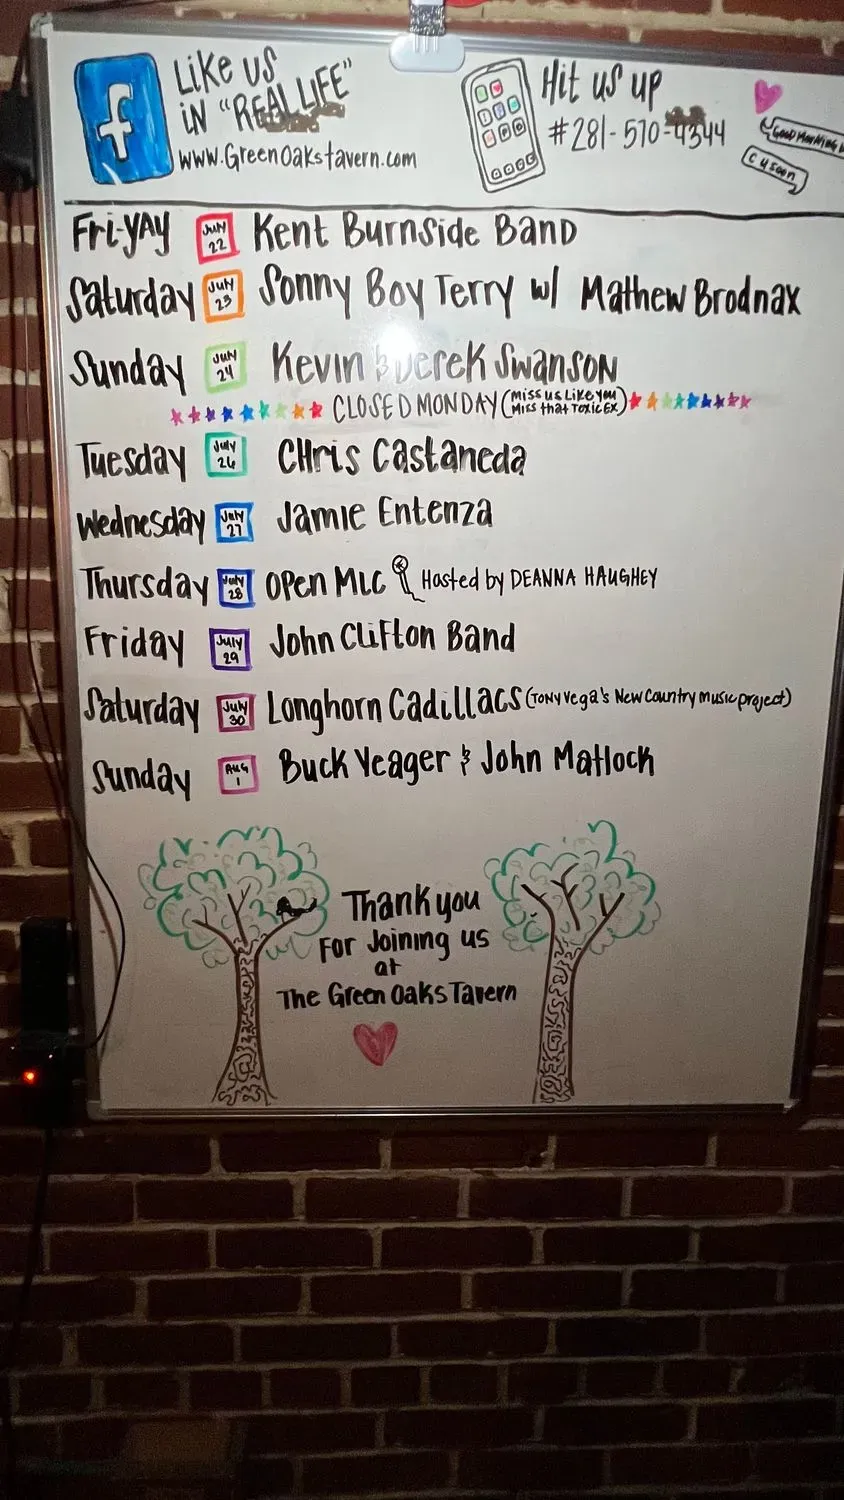 f
LiKe US
iN "REAL LIFE"
www.GreenOakstavern.com
Hit us up
#281-570-4344
GOOD MORNING
C U soon
FRi-YAY July 22 Kent Burnside Band
Saturday July 23 Sonny Boy Terry w/ Mathew Brodnax
Sunday July 24 Kevin & Derek Swanson
CLOSED MONDAY (Miss us Like You Miss that Toxic EX)
Tuesday July 26 CHris Castaneda
Wednesday July 27 Jamie Entenza
Thursday July 28 Open Mic Hosted by DEANNA HAUGHEY
Friday July 29 John Clifton Band
Saturday July 30 Longhorn Cadillacs (Tony Vega's New Country music project)
Sunday Aug 1 Buck Yeager & John Matlock
Thank you
For Joining us
at
The Green Oaks Tavern